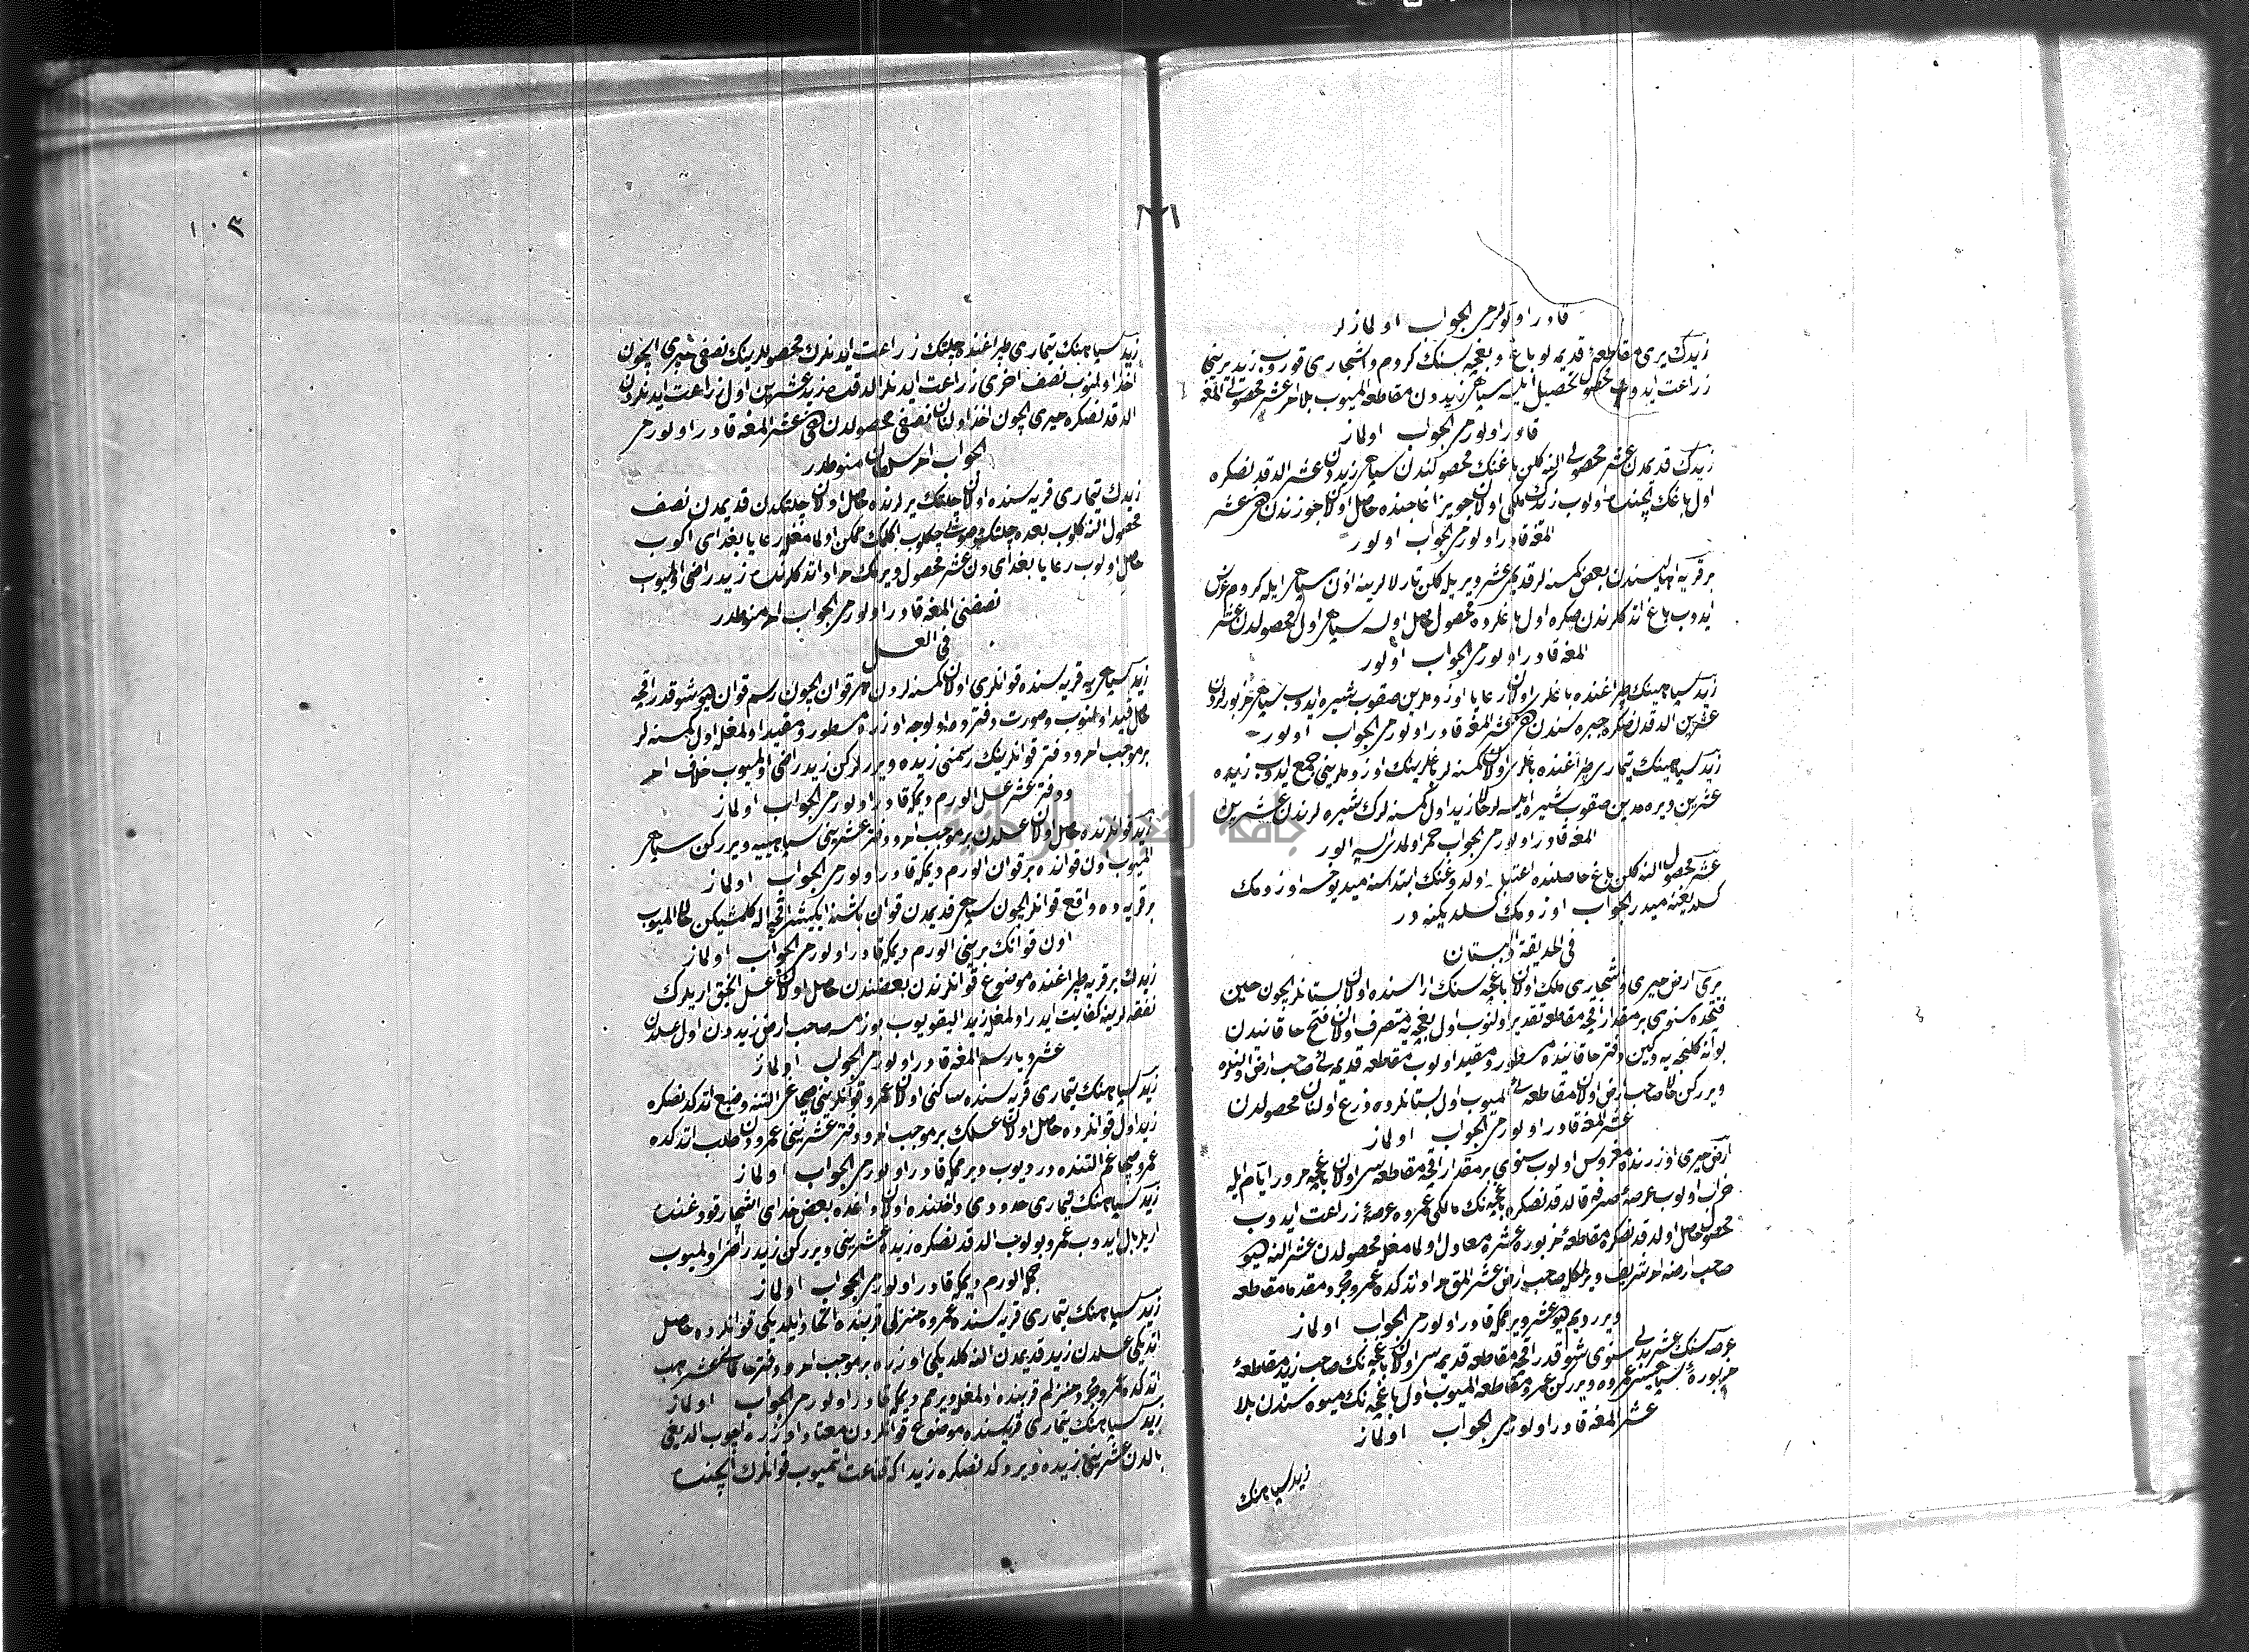 قادر اولورمى الجواب اولمازلر
زيدك يرى مقاطعۀ قديمه لو باغ و بغچه سنك كروم و اشجارى قوروب زيد يرينى
زراعت ايدوب محصول تحصيل ايلسه سپاهى زيددن مقاطعه الميوب بلا امر عشر محصولى المغه
قادر اولورمى الجواب اولماز
زيدك قديمدن عشر محصولى النه كلن باغنك محصولندن سپاهى زيددن عشر الدقدنصكره
اول باغك ايچنده اولوب زيدك ملكى اولان جويز اغاجنده حاصل اولان جوزندن دخى عشر
المغه قادر اولورمى الجواب اولور
بر قريه اهاليسندن بعض كمسنه لر قديمى عشر ويريله كلن تارلالرينه اذن سپاهى ايله كروم غرس
ايدوب باغ اتدكلرندن صكره اول باغلرده محصول حاصل اولسه سپاهى اول محصولدن عشر
المغه قادر اولورمى الجواب اولور
زيد سپاهينك طپراغنده باغلرى اولان رعايا اوزوملرين صقوب شيره ايدوب سپاهى مزبورلردن
عشرين الدقدنصكره جبره سندن دخى عشر المغه قادر اولورمى الجواب اولور
زيد سپاهينك تيمارى طپراغنده باغلرى اولان كمسنه لر باغلرينك اوزوملرينى جمع ايدوب زيده
عشرين ويرمدين صقوب شيره ايلسه لر حالا زيد اول كمسنه لرك شيره لرندن عشرين
المغه قادر اولورمى الجواب خمر اولمدى ايسه الور
عشر محصول النه كلن باغ حاصلنده اعتبار اولدوغنك ابتداسنه ميدر يوخسه اوزومك
كسلديغنه ميدر الجواب اوزومك كسلديكنه در
فى الحديقة و البستان
يرى ارض ميرى و اشجارى ملك اولان باغچه سنك اراسنده اولان بستانلر ايچون حين
فتحده سنوى بر مقدار اقچه مقاطعه تقدير اولنوب اول بغچه يه متصرف اولان فتح خاقانيدن
بو انه كلنجه يه دكين دفتر خاقانيده مسطور و مقيد اولوب مقاطعه قديمه سى صاحب ارض اولنلره
ويرركن حالا صاحب ارض اولان مقاطعه سى الميوب اول بستانلرده زرع اولنان محصولدن
عشر المغه قادر اولورمى الجواب اولماز
ارض ميرى اوزرنده مغروس اولوب سنوى بر مقدار اقچه مقاطعه سى اولان باغچه مرور ايام ايله
خراب اولوب عرصۀ صرفه قالدقدنصكره باغچه نك مالكى عمرو عرصه ده زراعت ايدوب
محصول حاصل اولدقدنصكره مقاطعۀ مزبوره عشره معادل اولمامغله محصولدن عشر النه ديو
صاحب ارضه امر شريف ويرلمكله صاحب ارض عشر المق مراد اتدكده عمرو مجرد مقدما مقاطعه
ويرردم ديو عشر ويرمامكه قادر اولورمى الجواب اولماز
عرصه سنك عشر بدلى سنوى شو قدر اقچه مقاطعه قديمه سى اولان باغچه نك صاحب زيد مقاطعۀ
مزبوره يى سپاهيسى عمروه ويرركن عمرو مقاطعه الميوب اول باغچه نك ميوه سندن بلا
عشر المغه قادر اولورمى الجواب اولماز
زيد سپاهينك
١٠٣
زيد سپاهينك تيمارى طپراغنده چلتك زراعت ايدنلرك محصوللرينك نصفى ميرى ايچون
اخذ اولنوب نصف اخرى زراعت ايدنلر الدقده زيد عشرين اول زراعت ايدنلردن
الدقدنصكره ميرى ايچون اخذ اولنان نصفى محصولدن دخى عشر المغه قادر اولورمى
الجواب امر سلطان منوطدر
زيدك تيمارى قريه سنده اولان چلتك يرلرنده حاصل اولان چلتكدن قديمدن نصف
محصول النه كلوب بعده چلتك اكلمك ممكن اولمامغله رعايا بغداى اكوب
حاصل اولوب رعايا بغدايدن عشر محصول ويرمك مراد اتدكلرنده زيد راضى اولميوب
نصفنى المغه قادر اولورمى الجواب امره منوطدر
فى العسل
زيد سپاهى بر قريه سنده قوانلرى اولان كمسنه لردن هر قوان ايچون رسم قوان ديو شو قدر اقچه
حاصل قيد اولنوب و صورت دفترده اولوجه اوزره مسطور و مقيد اولمغله اول كمسنه لر
بر موجب امر و دفتر قوانلرينك رسمنى زيده ويررلركن زيد راضى اولميوب خلاف امر
و دفتر عشر عسل الورم ديمكه قادر اولورمى الجواب اولماز
زيد قوانلرنده حاصل اولان عسلدن بر موجب امر و دفتر عشرينى سپاهيسنه ويرركن سپاهى
الميوب اون قوانده بر قوان الورم ديمكه قادر اولورمى الجواب اولماز
بر قريه ده واقع قوانلر ايچون سپاهى قديمدن قوان باشنه ايكيشر اقچه اله كلمشيكن حالا الميوب
اون قوانك برينى الورم ديمكه قادر اولورمى الجواب اولماز
زيدك بر قريه طپراغنده موضوع قوانلرندن بعضندن حاصل اولان عسل انجق اريلرك
نفقه لرينه كفايت ايدر اولمغله زيد اليقويوب بوزمسه صاحب ارض زيددن اول عسلدن
عشر ويا رسم المغه قادر اولورمى الجواب اولماز
زيد سپاهينك تيمارى قريه سنده ساكنى اولان عمرو قوانلرينى صچاغى التنه وضع اتدكدنصكره
زيد اول قوانلرده حاصل اولان عسلك بر موجب امر و دفتر عشرينى عمرودن طلب اتدكده
عمرو صچاغم التنده در ديوب ويرمامكه قادر اولورمى الجواب اولماز
زيد سپاهينك تيمارى حدودى داخلنده اولان طاغده بعض خداى اشجار قوووغنده
اريلر بال ايدوب عمرو بولوب الدقدنصكره زيده عشرينى ويرركن زيد راضى اولميوب
جمله الورم ديمكه قادر اولورمى الجواب اولماز
زيد سپاهينك تيمارى قريه سنده عمرو منزلى قربنده اتخاذ ايلديكى قوانلرده حاصل
اتديكى عسلدن زيد قديمدن النه كلديكى اوزره بر موجب امر و دفتر خاقانى عشر طلب
اتدكده عمرو مجرد منزلم قربنده اولمغله ويرمم ديمكه قادر اولورمى الجواب اولماز
زيد سپاهينك تيمارى قريه سنده موضوع قوانلردن معتاد اوزره ايدوب الديغى
بالدن عشرينى زيده ويردكدنصكره زيد اكا قناعت اتميوب قوانلرك ايچنده